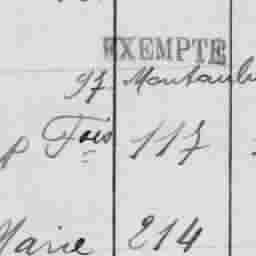 EXEMPTE
97 Montaub
Fois 117
Marie 214